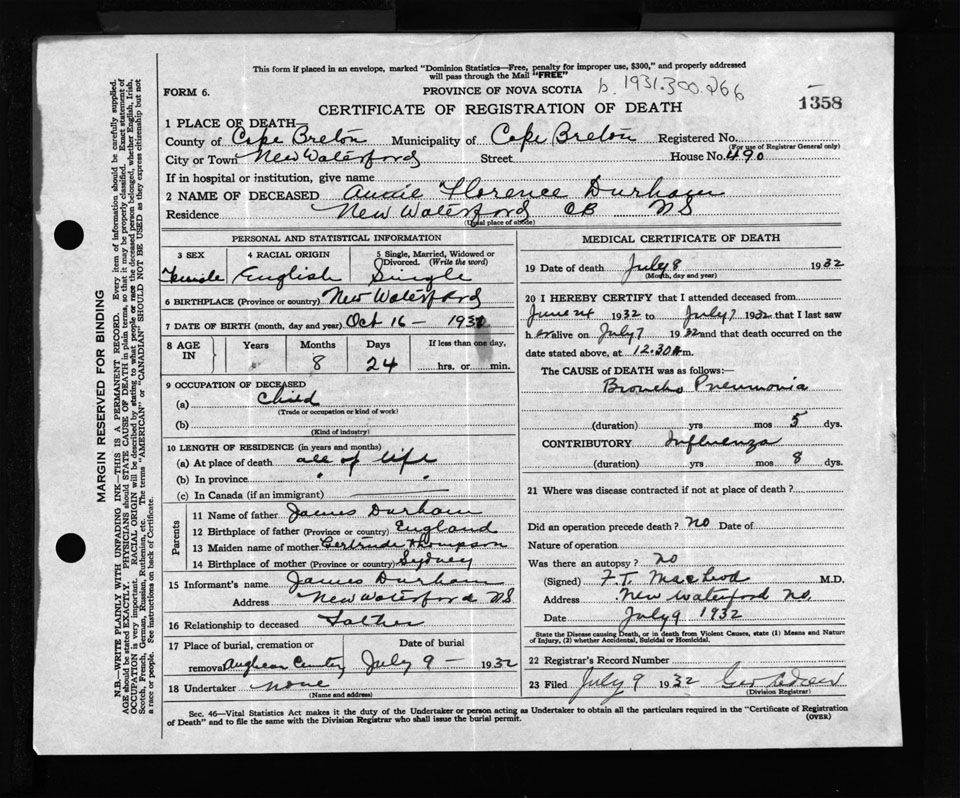 This form if placed in an envelope, marked "Dominion Statistics—Free, penalty for improper use, $300," and properly addressed
will pass through the Mail "FREE"
FORM 6. PROVINCE OF NOVA SCOTIA b. 1931.300.266
CERTIFICATE OF REGISTRATION OF DEATH 1358
1 PLACE OF DEATH—
County of Cape Breton Municipality of Cape Breton Registered No.
(For use of Registrar General only)
City or Town New Waterford Street House No. 490
If in hospital or institution, give name
2 NAME OF DECEASED Annie Florence Durham
Residence New Waterford CB NS
(Usual place of abode)
PERSONAL AND STATISTICAL INFORMATION
3 SEX 4 RACIAL ORIGIN 5 Single, Married, Widowed or
Divorced. (Write the word)
Female English Single
6 BIRTHPLACE (Province or country) New Waterford
7 DATE OF BIRTH (month, day and year) Oct 16 — 1931
8 AGE IN Years Months Days If less than one day,
8 24 hrs. or min.
9 OCCUPATION OF DECEASED
(a) Child
(Trade or occupation or kind of work)
(b)
(Kind of industry)
10 LENGTH OF RESIDENCE (in years and months)
(a) At place of death all of life
(b) In province " "
(c) In Canada (if an immigrant)
Parents
11 Name of father James Durham
12 Birthplace of father (Province or country) England
13 Maiden name of mother Gertrude Thompson
14 Birthplace of mother (Province or country) Sydney
15 Informant's name James Durham
Address New Waterford NS
16 Relationship to deceased Father
17 Place of burial, cremation or Date of burial
removal Anglican Cemetry July 9 — 1932
18 Undertaker none
(Name and address)
MEDICAL CERTIFICATE OF DEATH
19 Date of death July 8 1932
(Month, day and year)
20 I HEREBY CERTIFY that I attended deceased from
June 24 1932 to July 7 1932 that I last saw
h er alive on July 7 1932 and that death occurred on the
date stated above, at 12.30 A m.
The CAUSE OF DEATH was as follows:
Broncho Pneumonia
(duration) yrs mos 5 dys.
CONTRIBUTORY Influenza
(duration) yrs mos 8 dys.
21 Where was disease contracted if not at place of death?
Did an operation precede death? no Date of
Nature of operation
Was there an autopsy? no
(Signed) F.T. MacLeod M.D.
Address New Waterford NS
Date July 9 1932
State the Disease causing Death, or in death from Violent Causes, state (1) Means and Nature
of Injury, (2) whether Accidental, Suicidal or Homicidal.
22 Registrar's Record Number
23 Filed July 9 1932 Geo
(Division Registrar)
Sec. 46—Vital Statistics Act makes it the duty of the Undertaker or person acting as Undertaker to obtain all the particulars required in the "Certificate of Registration
of Death" and to file the same with the Division Registrar who shall issue the burial permit. (OVER)
MARGIN RESERVED FOR BINDING
N.B.—WRITE PLAINLY WITH UNFADING INK—THIS IS A PERMANENT RECORD. Every item of information should be carefully supplied.
AGE should be stated EXACTLY. PHYSICIANS should STATE CAUSE OF DEATH in plain terms, so that it may be properly classified. Exact statement of
OCCUPATION is very important. RACIAL ORIGIN will be described by stating to what people or race the deceased person belonged, whether English, Irish,
Scotch, French, German, Russian, Ruthenian, etc. The terms "AMERICAN" or "CANADIAN" SHOULD NOT BE USED as they express citizenship but not
a race or people. See instructions on back of Certificate.